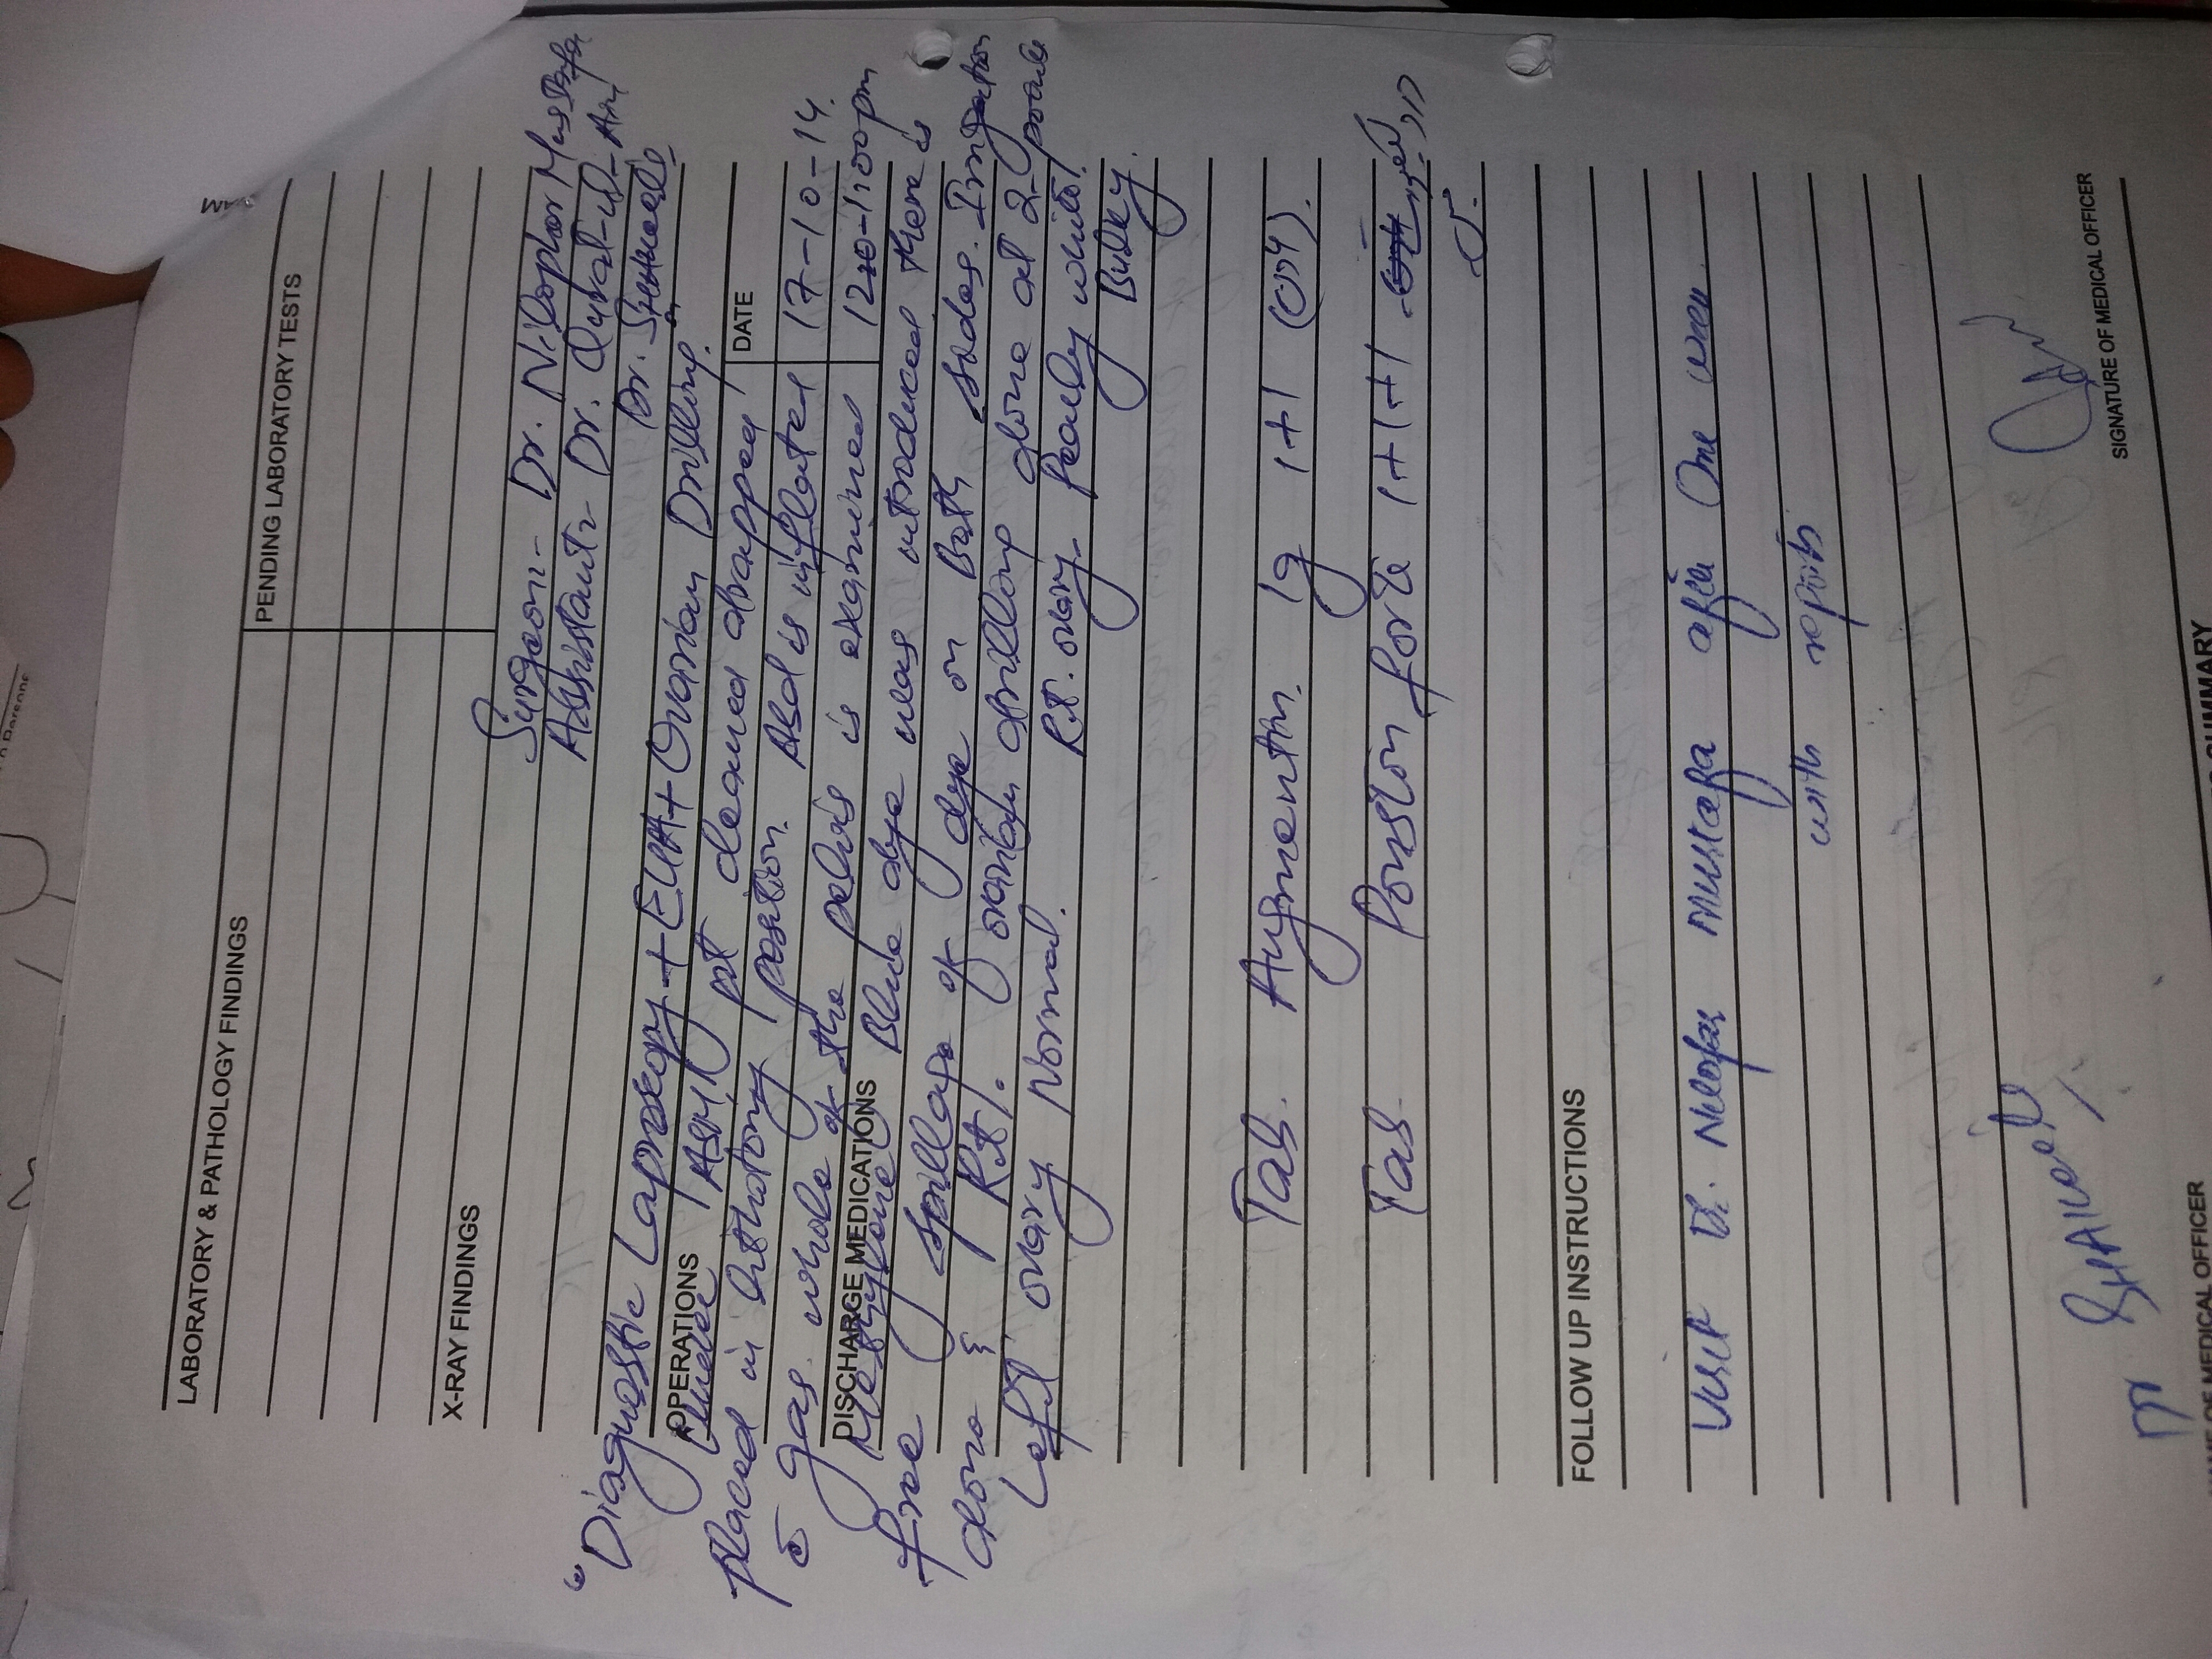 LABORATORY & PATHOLOGY FINDINGS PENDING LABORATORY TESTS
X-RAY FINDINGS
Surgeon - Dr. Nilophar Mustafa
Assistant - Dr. Qurat-ul-Ain
Dr.
"Diagnostic Laproscopy + EUA + Ovarian Drilling.
OPERATIONS DATE
Under ASM, pt cleaned drapped
placed in lithotomy position. Abd is inflated 17-10-14.
c̄ gas. whole of the pelvis is examined 12-1:00pm
DISCHARGE MEDICATIONS
Methylene Blue dye was introduced there is
free spillage of dye on Both sides. Irrigation
done & R.t. ovarian drilling done at 2-
Left ovary Normal. R.t. ovary - Pearly white,
Bulky.
Tab. Augmentin 1g 1+1
Tab Ponston forte 1+1+1
FOLLOW UP INSTRUCTIONS
Visit Dr. Nilofar Mustafa after One week
with reports
Dr
NAME OF MEDICAL OFFICER SIGNATURE OF MEDICAL OFFICER
SUMMARY